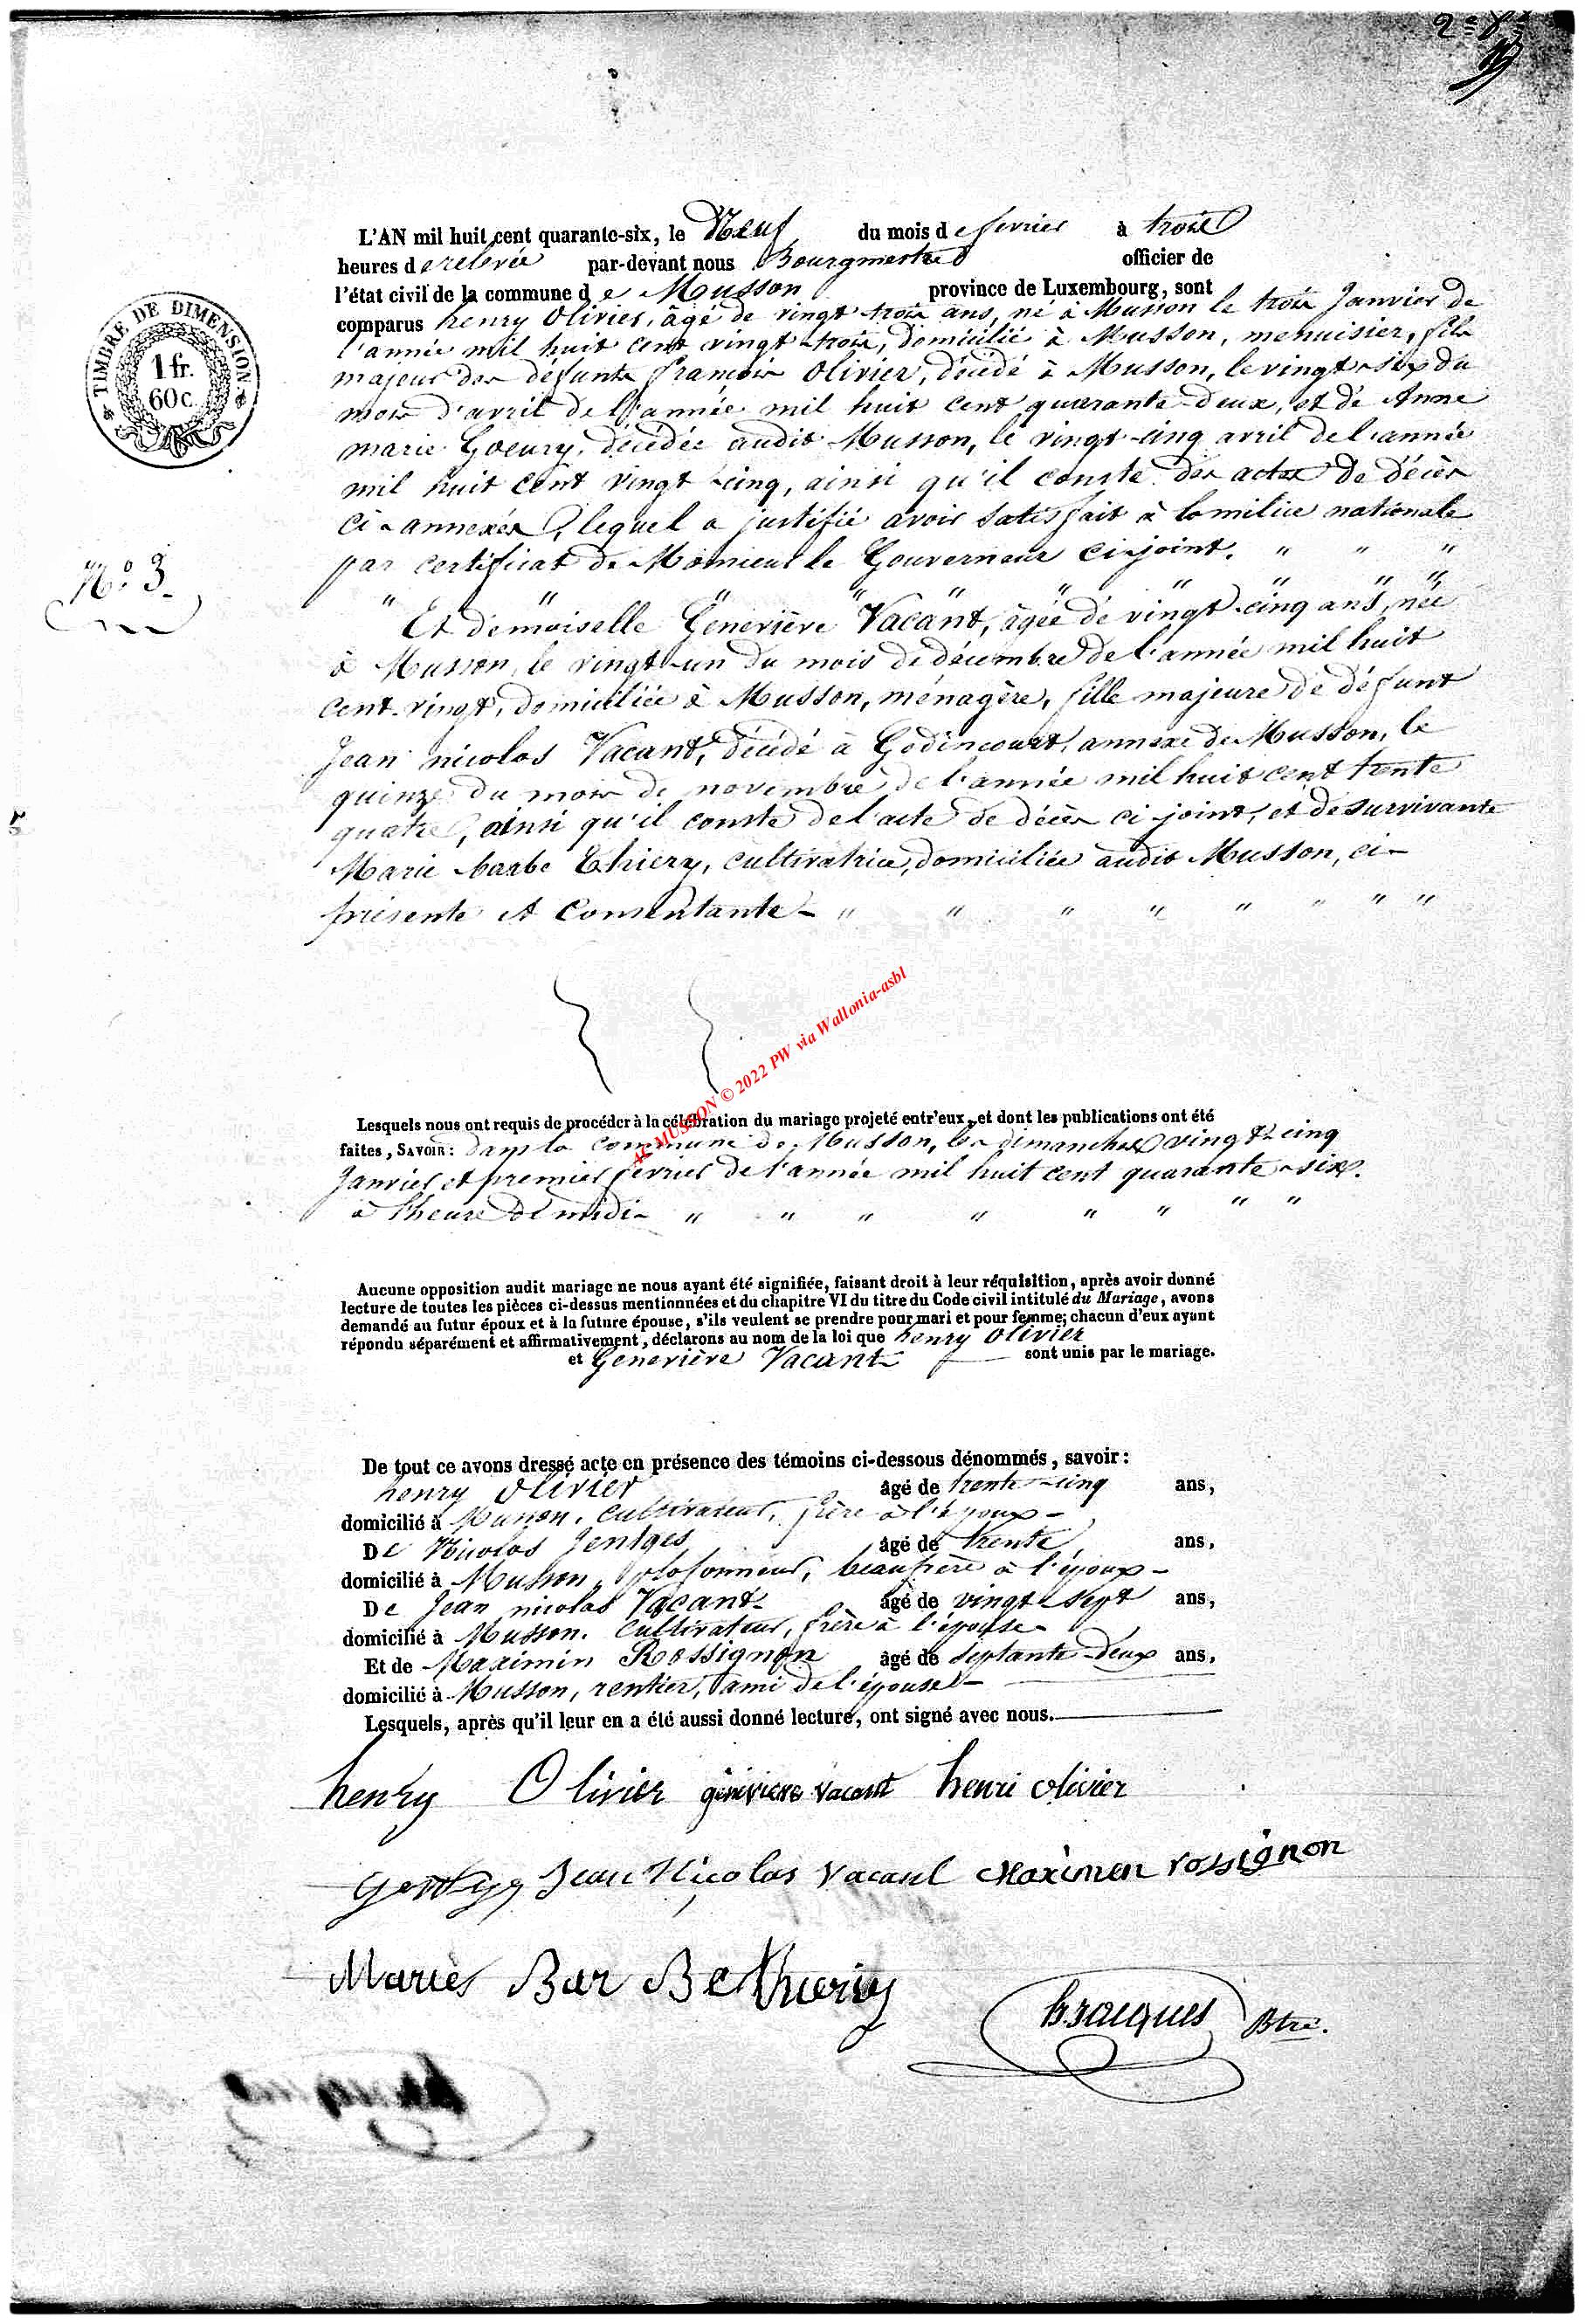 TIMBRE DE DIMENSION.
1 fr.
60 c.
N.o 3.
L'AN mil huit cent quarante-six, le Neuf du mois de fevrier à trois
heures de relevée par-devant nous Bourgmestre officier de
l'état civil de la commune de Musson province de Luxembourg, sont
comparus henry Olivier, âgé de vingt trois ans, né à Musson le trois Janvier de
l'année mil huit cent vingt-trois, domicilié à Musson, menuisier, fils
majeur des défunts francois Olivier, décédé à Musson, le vingt-six du
mois d'avril de l'année mil huit cent quarante-deux, et de Anne
marie Goeury, décédée audit Musson, le vingt-cinq avril de l'année
mil huit cent vingt-cinq, ainsi qu'il conste des actes de décès
ci-annexés, lequel a justifié avoir satisfait à la milice nationale
par certificat de Monsieur le Gouverneur ci-joint. " " "
" " " " " " " "
Et demoiselle Geneviève Vacant, âgée de vingt-cinq ans, née
à Musson, le vingt-un du mois de décembre de l'année mil huit
cent-vingt, domiciliée à Musson, ménagère, fille majeure de défunt
Jean nicolas Vacant, décédé à Godincourt, annexe de Musson, le
quinze du mois de novembre de l'année mil huit cent trente
quatre, ainsi qu'il conste de l'acte de décès ci-joint, et de survivante
Marie barbe Thiery, cultivatrice, domiciliée audit Musson, ci-
présente et consentante - " " " " " " " "
Lesquels nous ont requis de procéder à la célébration du mariage projeté entr'eux, et dont les publications ont été
faites, SAVOIR: dans la commune de Musson, les dimanches vingt-cinq
Janvier et premier fevrier de l'année mil huit cent quarante-six.
à l'heure de midi - " " " " " " " "
AC MUSSON © 2022 PW via Wallonia-asbl
Aucune opposition audit mariage ne nous ayant été signifiée, faisant droit à leur réquisition, après avoir donné
lecture de toutes les pièces ci-dessus mentionnées et du chapitre VI du titre du Code civil intitulé du Mariage, avons
demandé au futur époux et à la future épouse, s'ils veulent se prendre pour mari et pour femme; chacun d'eux ayant
répondu séparément et affirmativement, déclarons au nom de la loi que henry Olivier
et Geneviève Vacant sont unis par le mariage.
De tout ce avons dressé acte en présence des témoins ci-dessous dénommés, savoir:
henry Olivier âgé de trente-cinq ans,
domicilié à Musson, cultivateur, frère à l'époux -
De Nicolas Jentges âgé de trente ans,
domicilié à Musson, plafonneur, beaufrère à l'époux -
De Jean nicolas Vacant âgé de vingt sept ans,
domicilié à Musson, cultivateur, frère à l'épouse
Et de Maximin Rossignon âgé de septante-deux ans,
domicilié à Musson, rentier, ami de l'épouse -
Lesquels, après qu'il leur en a été aussi donné lecture, ont signé avec nous.
henry Olivier géneviere vacant henri olivier
Jean Nicolas Vacant Maximen rossignon
Maries Bar Be thieriy
Btre.